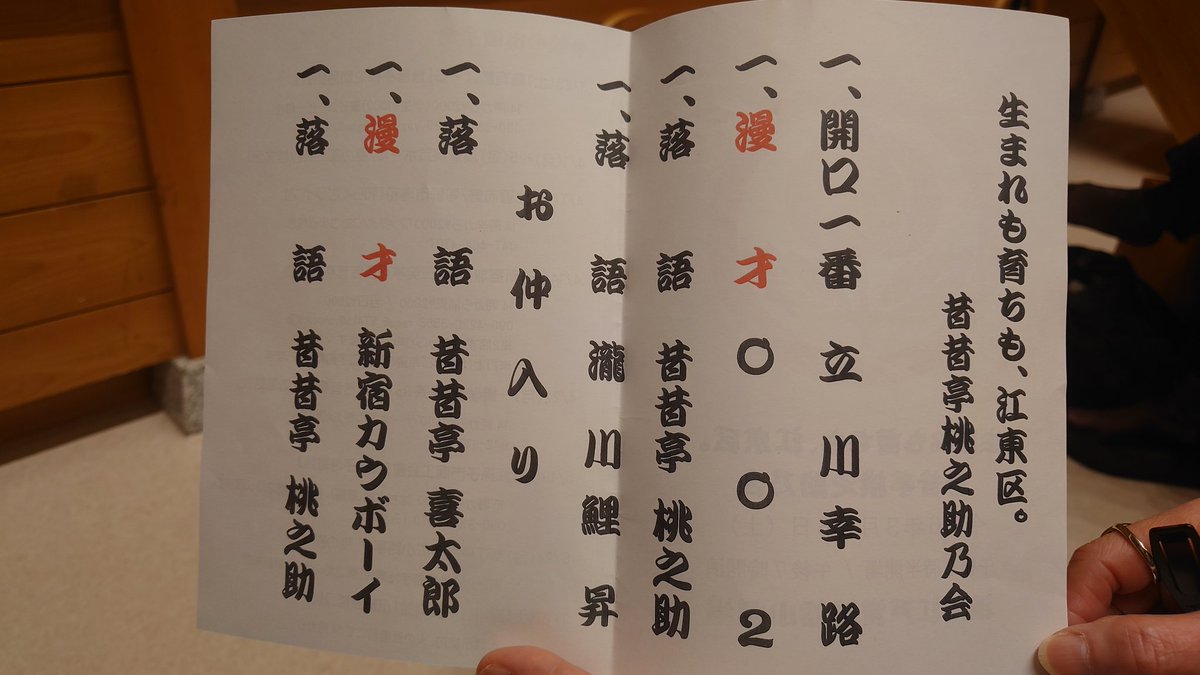 生まれも育ちも、江東区。
昔昔亭桃之助乃会
一、開口一番 立川幸路
一、漫才 〇〇2
一、落語 昔昔亭 桃之助
一、落語 瀧川鯉昇
お仲入り
一、落語 昔昔亭 喜太郎
一、漫才 新宿カウボーイ
一、落語 昔昔亭 桃之助